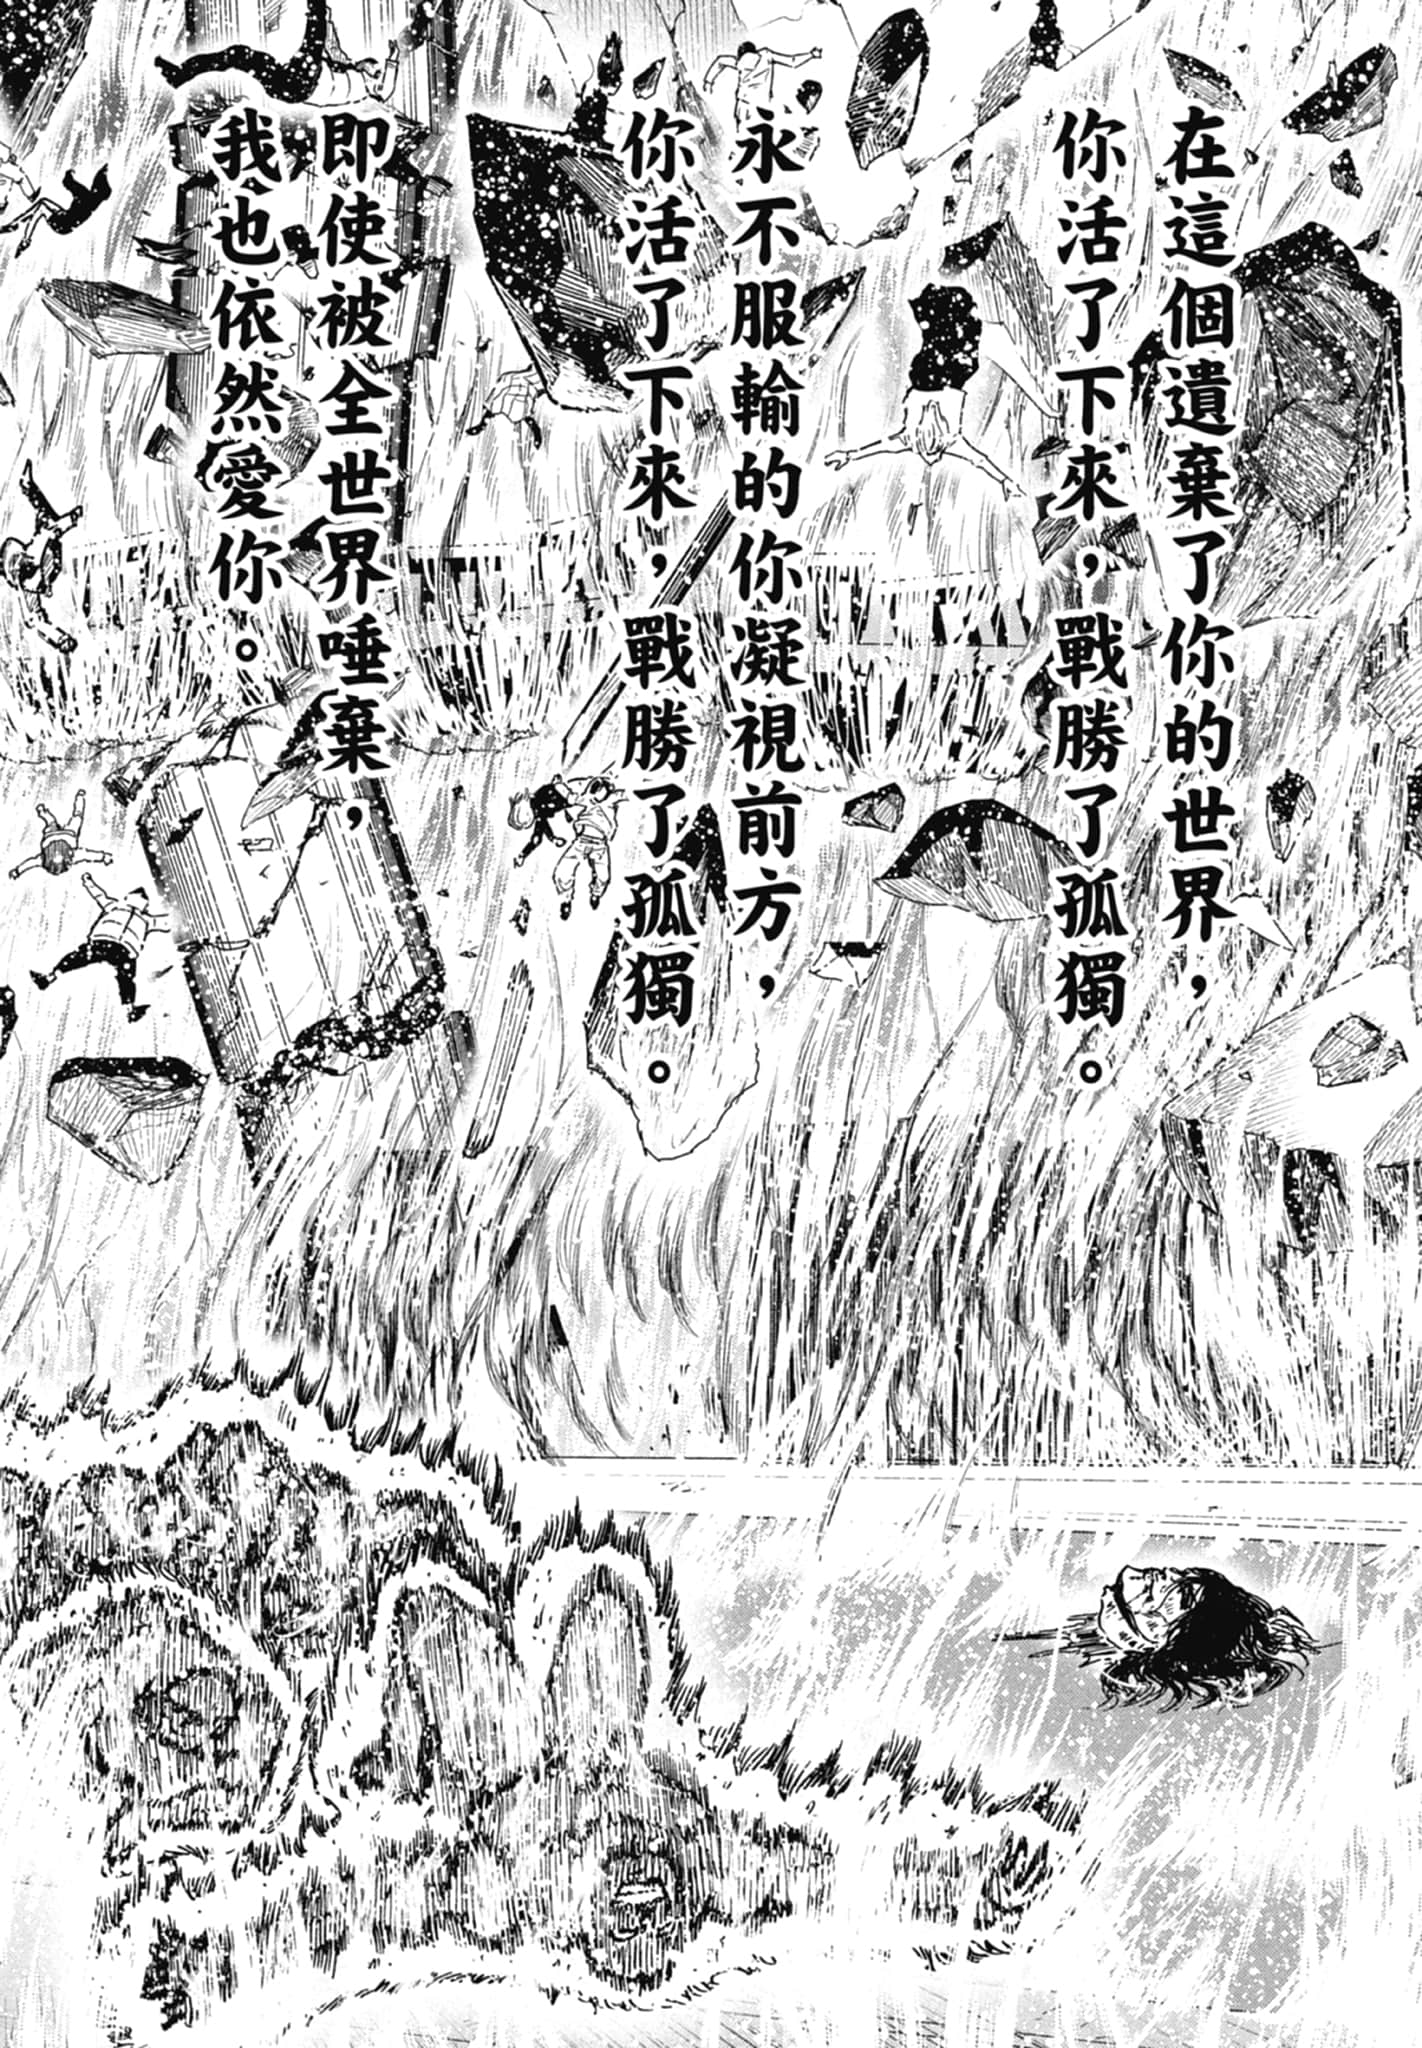 在這個遺棄了你的世界，
你活了下來，戰勝了孤獨。
永不服輸的你凝視前方，
你活了下來，戰勝了孤獨。
即使被全世界唾棄，
我也依然愛你。